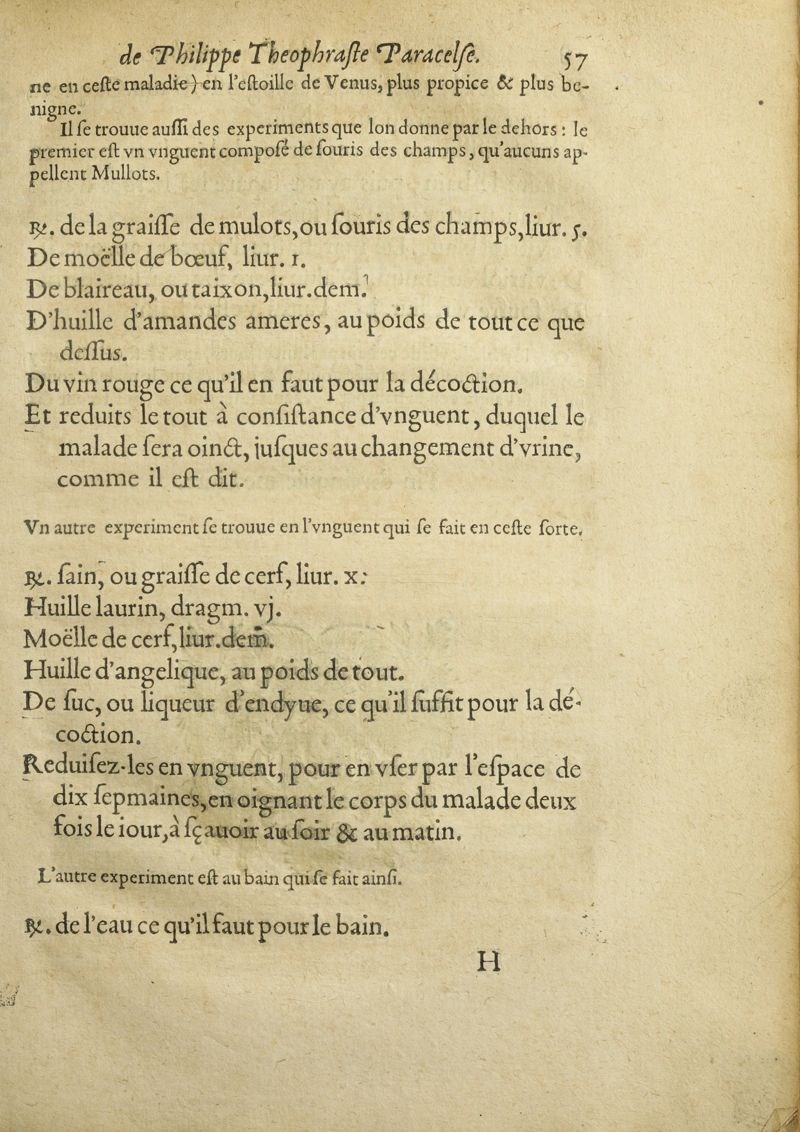 de Philippe Theophraſte Paracelſe. 57
ne en ceſte maladie) en l'eſtoille de Venus, plus propice & plus be-
nigne.
Il ſe trouue auſſi des experiments que lon donne par le dehors : le
premier eſt vn vnguent compoſé de ſouris des champs, qu'aucuns ap-
pellent Mullots.
℞. de la graiſſe de mulots, ou ſouris des champs, liur. j.
De moëlle de bœuf, liur. 1.
De blaireau, ou taixon, liur. dem.
D'huille d'amandes ameres, au poids de tout ce que
deſſus.
Du vin rouge ce qu'il en faut pour la décoction.
Et reduits le tout à conſiſtance d'vnguent, duquel le
malade ſera oinct, iuſques au changement d'vrine,
comme il eſt dit.
Vn autre experiment ſe trouue en l'vnguent qui ſe fait en ceſte ſorte.
℞. ſain, ou graiſſe de cerf, liur. x:
Huille laurin, dragm. vj.
Moëlle de cerf, liur. dem.
Huille d'angelique, au poids de tout.
De ſuc, ou liqueur d'endyue, ce qu'il ſuffit pour la dé-
coction.
Reduiſez-les en vnguent, pour en vſer par l'eſpace de
dix ſepmaines, en oignant le corps du malade deux
fois le iour, à ſçauoir au ſoir & au matin.
L'autre experiment eſt au bain qui ſe fait ainſi.
℞. de l'eau ce qu'il faut pour le bain.
H